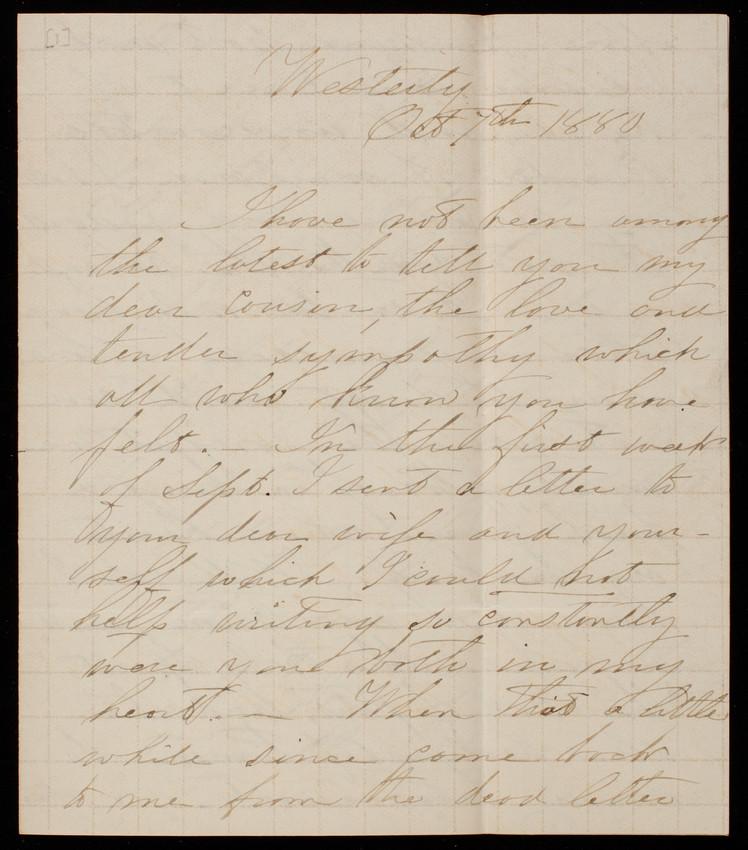 [1]
Westerly
Oct 7th 1880
I have not been among
the latest to tell you my
dear cousin, the love and
tender sympathy which
all who know you have
felt. — In the first week
of Sept. I sent a letter to
your dear wife and your-
self which I could not
help writing so constantly
were you both in my
heart. — When that a little
while since came back
to me from the dead letter